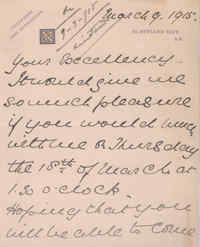 March 9. 1915.
Your Excellency.
It would give me
so much pleasure
if you would lunch
with me on Thursday
the 18th of March at
1.30 o'clock
Hoping that you
will be able to come